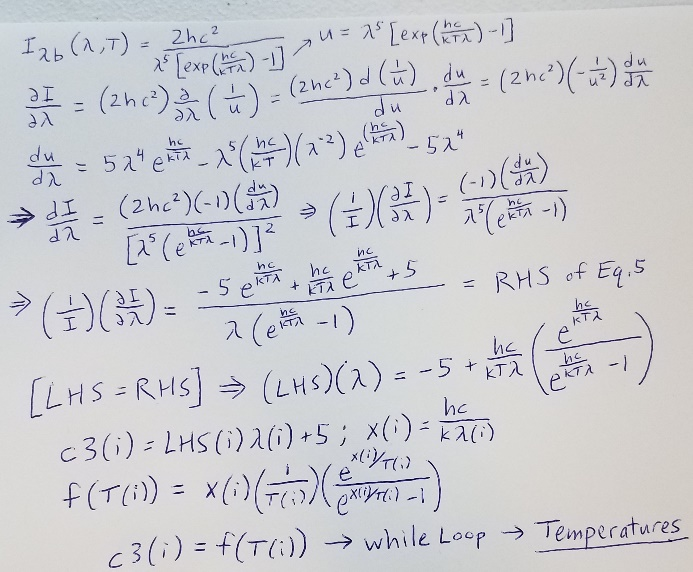 I_λb (λ,T) = 2hc² / λ⁵ [exp(hc/kTλ) -1] ↗ u = λ⁵ [exp(hc/kTλ) -1]
∂I/∂λ = (2hc²) ∂/∂λ (1/u) = (2hc²) d (1/u) / du · du/dλ = (2hc²) (-1/u²) du/dλ
du/dλ = 5λ⁴ e^(hc/kTλ) - λ⁵ (hc/kT) (λ⁻²) e^(hc/kTλ) - 5λ⁴
⇒ dI/dλ = (2hc²)(-1)(du/dλ) / [λ⁵ (e^(hc/kTλ) -1)]² ⇒ (1/I) (∂I/∂λ) = (-1) (du/dλ) / λ⁵(e^(hc/kTλ) -1)
⇒ (1/I) (∂I/∂λ) = -5 e^(hc/kTλ) + hc/kTλ e^(hc/kTλ) + 5 / λ (e^(hc/kTλ) -1) = RHS of Eq.5
[LHS = RHS] ⇒ (LHS)(λ) = -5 + hc/kTλ (e^(hc/kTλ) / e^(hc/kTλ) -1)
c3(i) = LHS(i) λ(i) +5 ; x(i) = hc / kλ(i)
f(T(i)) = x(i) (1/T(i)) (e^(x(i)/T(i)) / e^(x(i)/T(i)) -1)
c3(i) = f(T(i)) → while Loop → Temperatures